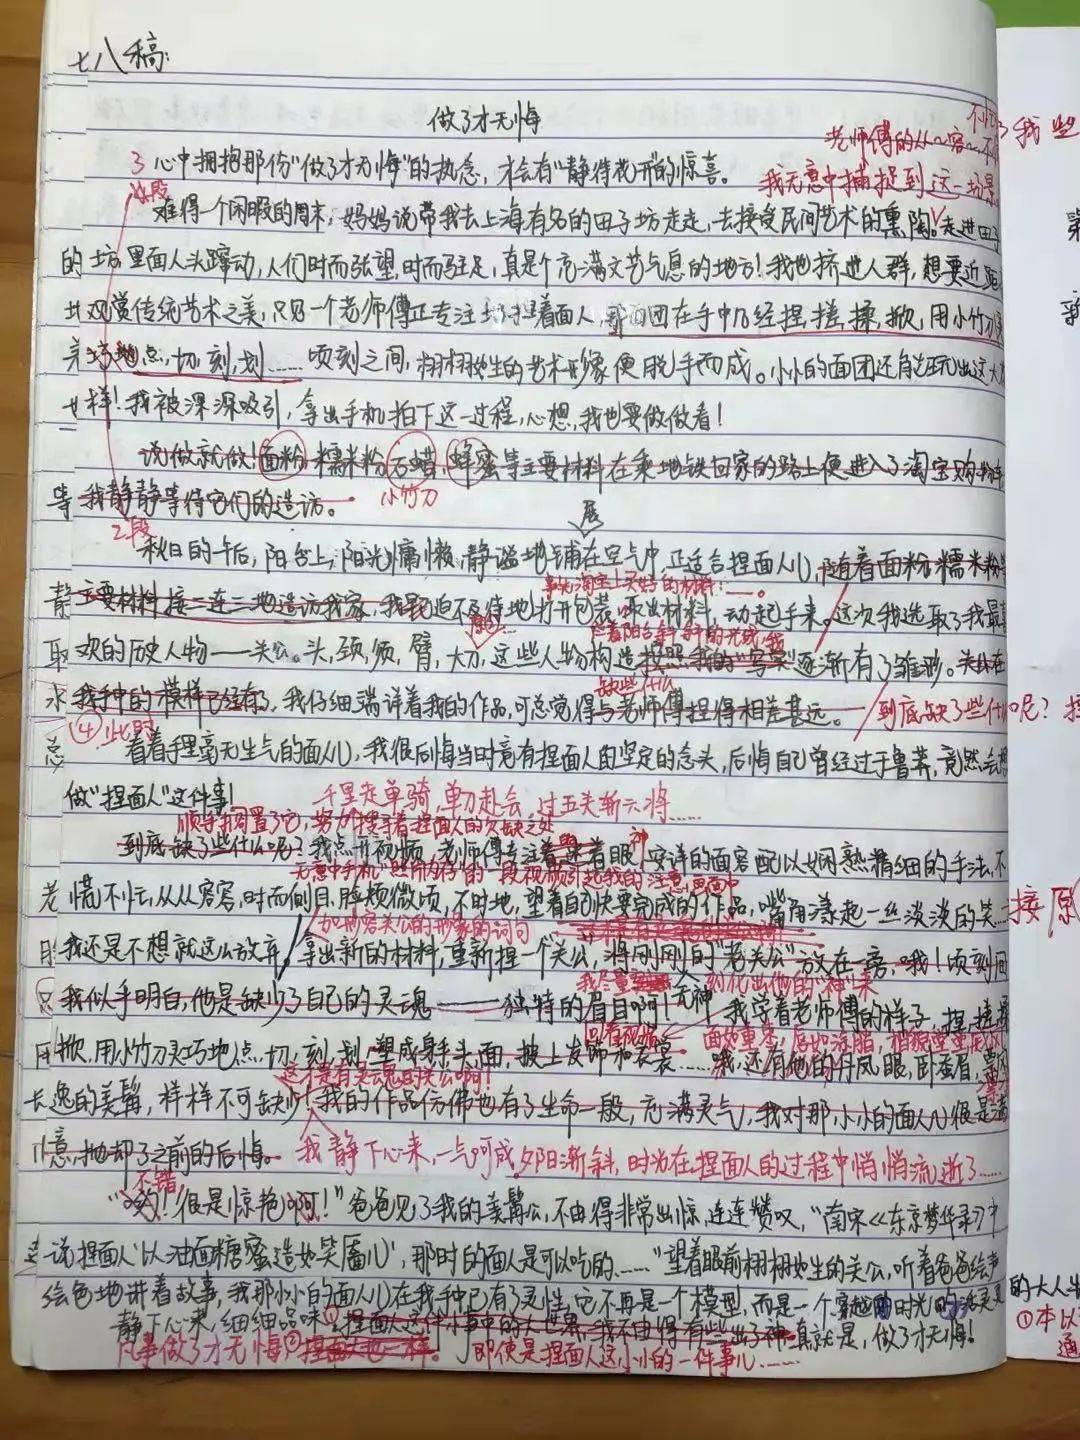 七八稿:
做了才无悔
老师傅的从容
3 心中拥抱那份“做了才无悔”的执念，才会有“静待花开”的惊喜。
我无意中捕捉到这一场景
难得一个闲暇的周末，妈妈说带我去上海有名的田子坊走走，去接受民间艺术的熏陶。走进田子
坊，里面人头蹿动，人们时而张望，时而驻足，真是个充满文艺气息的地方！我也挤进人群，想要近距
观赏传统艺术之美，只见一个老师傅正专注地捏着面人，那面团在手中几经捏，搓，揉，掀，用小竹刀
地点，切，刻，划……顷刻之间，栩栩如生的艺术形象便脱手而成。小小的面团还能玩出这大
样！我被深深吸引，拿出手机拍下这一过程，心想，我也要做做看！
说做就做！面粉 糯米粉 石蜡，蜂蜜等主要材料在乘地铁回家的路上便进入了淘宝购物车
我静静等待它们的造访。
小竹刀
2段
展
秋日的午后，阳台上，阳光慵懒，静谧地铺在空气中，正适合捏面人儿，随着面粉 糯米粉
事先淘宝上买好的材料：
主要材料接二连三地造访我家，我迫不及待地打开包装，取出材料，动起手来。这次我选取了我最喜
欢的历史人物——关公。头，颈，须，臂，大刀，这些人物构造按照我的“写案”逐渐有了雏形。
我手中的模样已经有了，我仔细端详着我的作品，可总觉得与老师傅捏得相差甚远。
缺些什么
到底缺了些什么呢？
④ 此时
看着手里毫无生气的面人儿，我很后悔当时竟有捏面人的坚定的念头，后悔自己曾经过于鲁莽，竟然会想
做“捏面人”这件事！
千里走单骑，单刀赴会，过五关斩六将……
顺手搁置了它，努力搜寻着捏面人的欠缺之处
到底缺了些什么呢？我点开视频，老师傅专注着眼，安详的面容配以娴熟精细的手法，不
无意中手机“内存”的一段视频引起我的注意，画面中
慌不忙，从从容容，时而侧目，时不时地，望着自己快要完成的作品，嘴角漾起一丝淡淡的笑……
加形容关公的形象的词句
我还是不想就这么放弃。拿出新的材料，重新捏一个关公，将刚刚的“老关公”放在一旁，哦！顷刻间
我尽量 刻化出他的“神”来
我似乎明白，他是缺少了自己的灵魂——独特的眉目啊！无神 我学着老师傅的样子，捏，搓，揉
回看视频
面如重枣，唇如涂脂，相貌堂堂
掀，用小竹刀灵巧地点，切，刻，划，塑成身手头面，披上发饰和衣裳……哦，还有他的丹凤眼，卧蚕眉，
这才是有灵魂的关公啊！
长逸的美髯，样样不可缺少！我的作品仿佛也有了生命一般，充满灵气，我对那小小的面人儿很是满
意，抛却了之前的后悔。 我静下心来，一气呵成，夕阳渐斜，时光在捏面人的过程中悄悄流逝了……
不错
“哟！很是惊艳啊！”爸爸见了我的美髯公，不由得非常出惊，连连赞叹，“南宋《东京梦华录》中
说捏面人‘以油面糖蜜造如笑靥儿’，那时的面人是可以吃的……”望着眼前栩栩如生的关公，听着爸爸绘声
绘色地讲着故事，我那小小的面人儿在我手中已有了灵性，它不再是一个模型，而是一个穿越时光的活灵灵
静下心来，细细品味，捏面人这件小事中的大世界，我不由得有些出了神，真就是，做了才无悔！
凡事做了才无悔，捏面人也一样。 即使是捏面人这小小的一件事儿……
接原
的大人生
①本以